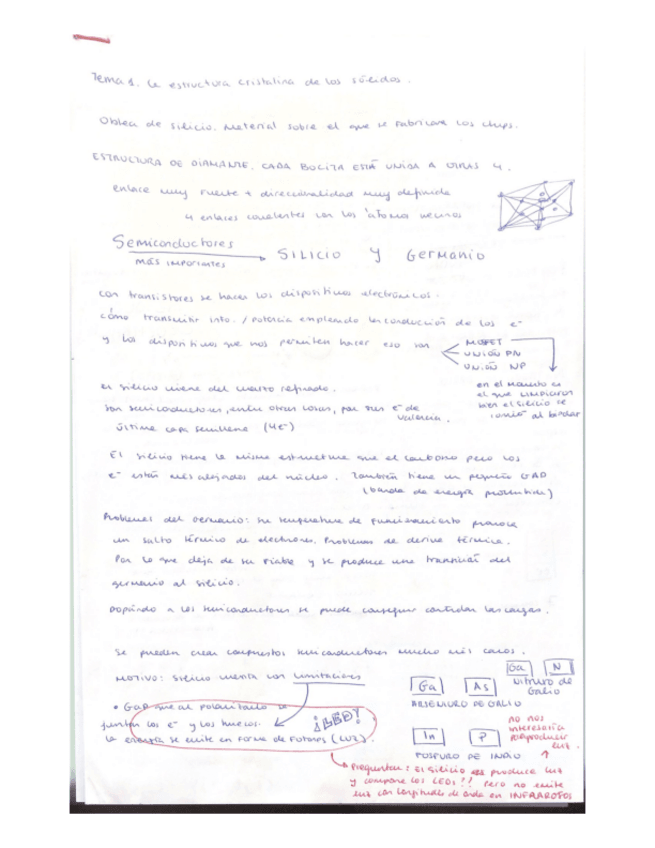 Tema 1. La estructura cristalina de los sólidos.
Oblea de silicio. Material sobre el que se fabrican los chips.
ESTRUCTURA DE DIAMANTE. CADA BOLITA ESTÁ UNIDA A OTRAS 4.
enlace muy fuerte + direccionalidad muy definida
4 enlaces covalentes con los átomos vecinos
Semiconductores
más importantes
SILICIO Y Germanio
con transistores se hacen los dispositivos electrónicos.
cómo transmitir info. / potencia empleando la conducción de los e-
y los dispositivos que nos permiten hacer eso son
MOSFET
UNIÓN PN
UNIÓN NP
en el momento en
el que limpiaron
bien el silicio se
al bipolar
el silicio viene del cuarzo refinado.
son semiconductores, entre otras cosas, por sus e- de
valencia.
última capa semillena (4e-)
El silicio tiene la misma estructura que el carbono pero los
e- están más alejados del núcleo. También tiene un pequeño GAP
(banda de energía prohibida)
Problemas del germanio: su temperatura de funcionamiento provoca
un salto térmico de electrones. Problemas de deriva térmica.
Por lo que deja de ser viable y se produce una transición del
germanio al silicio.
Dopando a los semiconductores se puede conseguir controlar las cargas.
Se pueden crear compuestos semiconductores mucho más caros.
MOTIVO: Silicio cuenta con limitaciones
Ga N
Nitruro de
Galio
Ga As
ARSENIURO DE GALIO
• GaP que al polarizarlo se
juntan los e- y los huecos.
¡LED!
la energía se emite en forma de fotones (LUZ).
In P
FOSFURO DE INDIO
no nos
interesaría
por producir
luz.
Preguntar: el silicio produce luz
y compone los LEDs?? Pero no emite
luz con longitudes de onda en INFRARROJOS